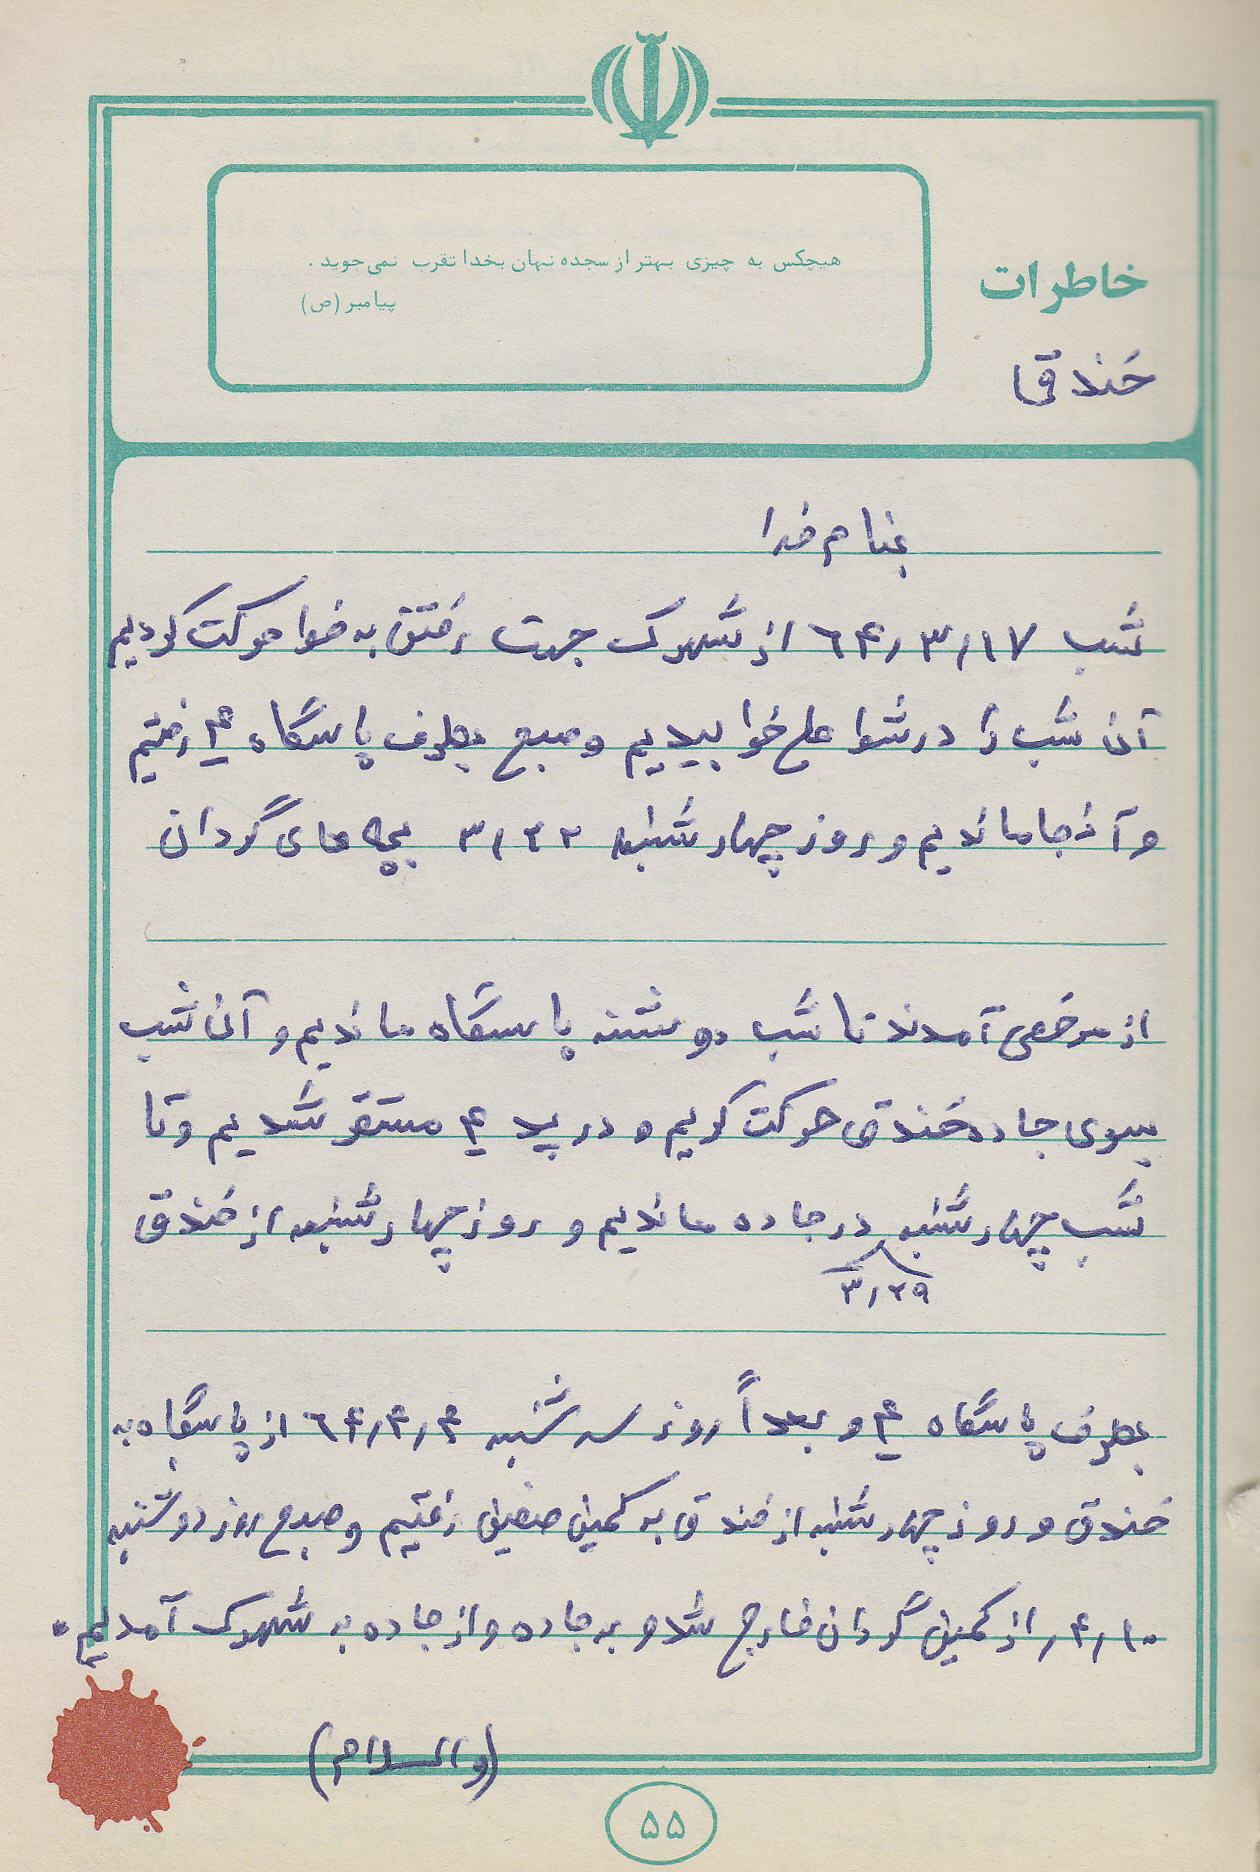 هیچکس به چیزی بهتر از سجده نهان بخدا تقرب نمی‌جوید.
پیامبر (ص)
خاطرات
خندق
بنام خدا
شب ۶۴/۳/۱۷ از شهرک جهت رفتن به خط حرکت کردیم
آن شب را در شط علی خوابیدیم و صبح بطرف پاسگاه ۴ رفتیم
و آنجا ماندیم و روز چهارشنبه ۳/۲۲ بچه های گردان
از مرخصی آمدند تا شب دوشنبه پاسگاه ماندیم و آن شب
بسوی جاده خندق حرکت کردیم و در پد ۴ مستقر شدیم و تا
شب چهارشنبه در جاده ماندیم و روز چهارشنبه از خندق
۳/۲۹
بطرف پاسگاه ۴ و بعداً روز سه شنبه ۶۴/۴/۴ از پاسگاه به
خندق و روز چهارشنبه از خندق به کمین رفتیم و صبح روز دوشنبه
۴/۱۰/ از کمین گردان خارج شد و به جاده و از جاده به شهرک آمدیم.
(والسلام)
۵۵